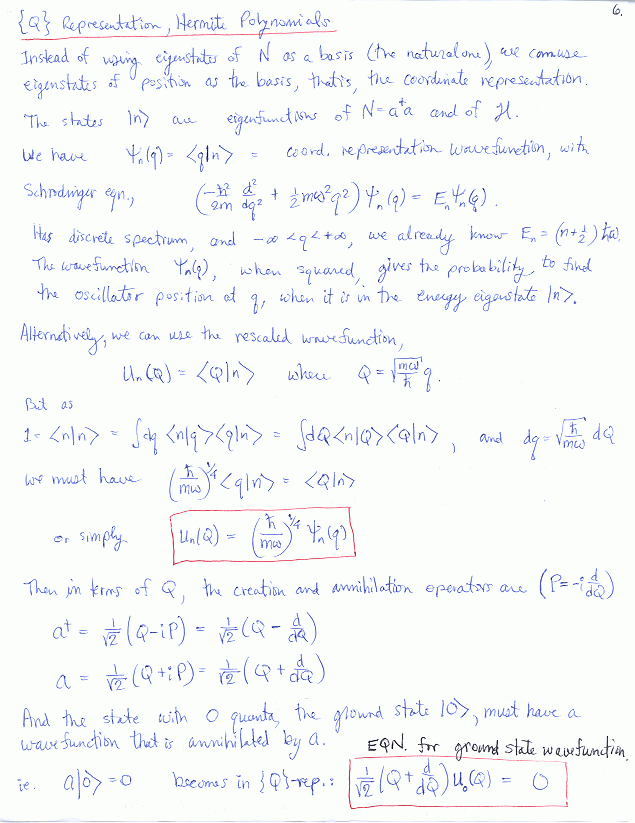 6.
{Q} Representation, Hermite Polynomials
Instead of using eigenstates of N as a basis (the natural one) we can use
eigenstates of position as the basis, that is, the coordinate representation.
The states |n> are eigenfunctions of N = a†a and of H.
We have Ψn(q) = <q|n> = coord. representation wavefunction, with
Schrodinger eqn., (-ħ²/2m d²/dq² + ½mω²q²) Ψn(q) = En Ψn(q).
Has discrete spectrum, and -∞ < q < +∞, we already know En = (n+½)ħω.
The wavefunction Ψn(q), when squared, gives the probability to find
the oscillator position at q, when it is in the energy eigenstate |n>.
Alternatively, we can use the rescaled wavefunction,
Un(Q) = <Q|n> where Q = √(mω/ħ) q.
But as
1 = <n|n> = ∫dq <n|q><q|n> = ∫dQ <n|Q><Q|n>, and dq = √(ħ/mω) dQ
we must have (ħ/mω)^1/4 <q|n> = <Q|n>
or simply Un(Q) = (ħ/mω)^1/4 Ψn(q)
Then in terms of Q, the creation and annihilation operators are (P = -i d/dQ)
a† = 1/√2 (Q-iP) = 1/√2 (Q - d/dQ)
a = 1/√2 (Q+iP) = 1/√2 (Q + d/dQ)
And the state with 0 quanta, the ground state |0>, must have a
wavefunction that is annihilated by a. EQN. for ground state wavefunction.
ie. a|0> = 0 becomes in {Q}-rep.: 1/√2 (Q + d/dQ) U₀(Q) = 0